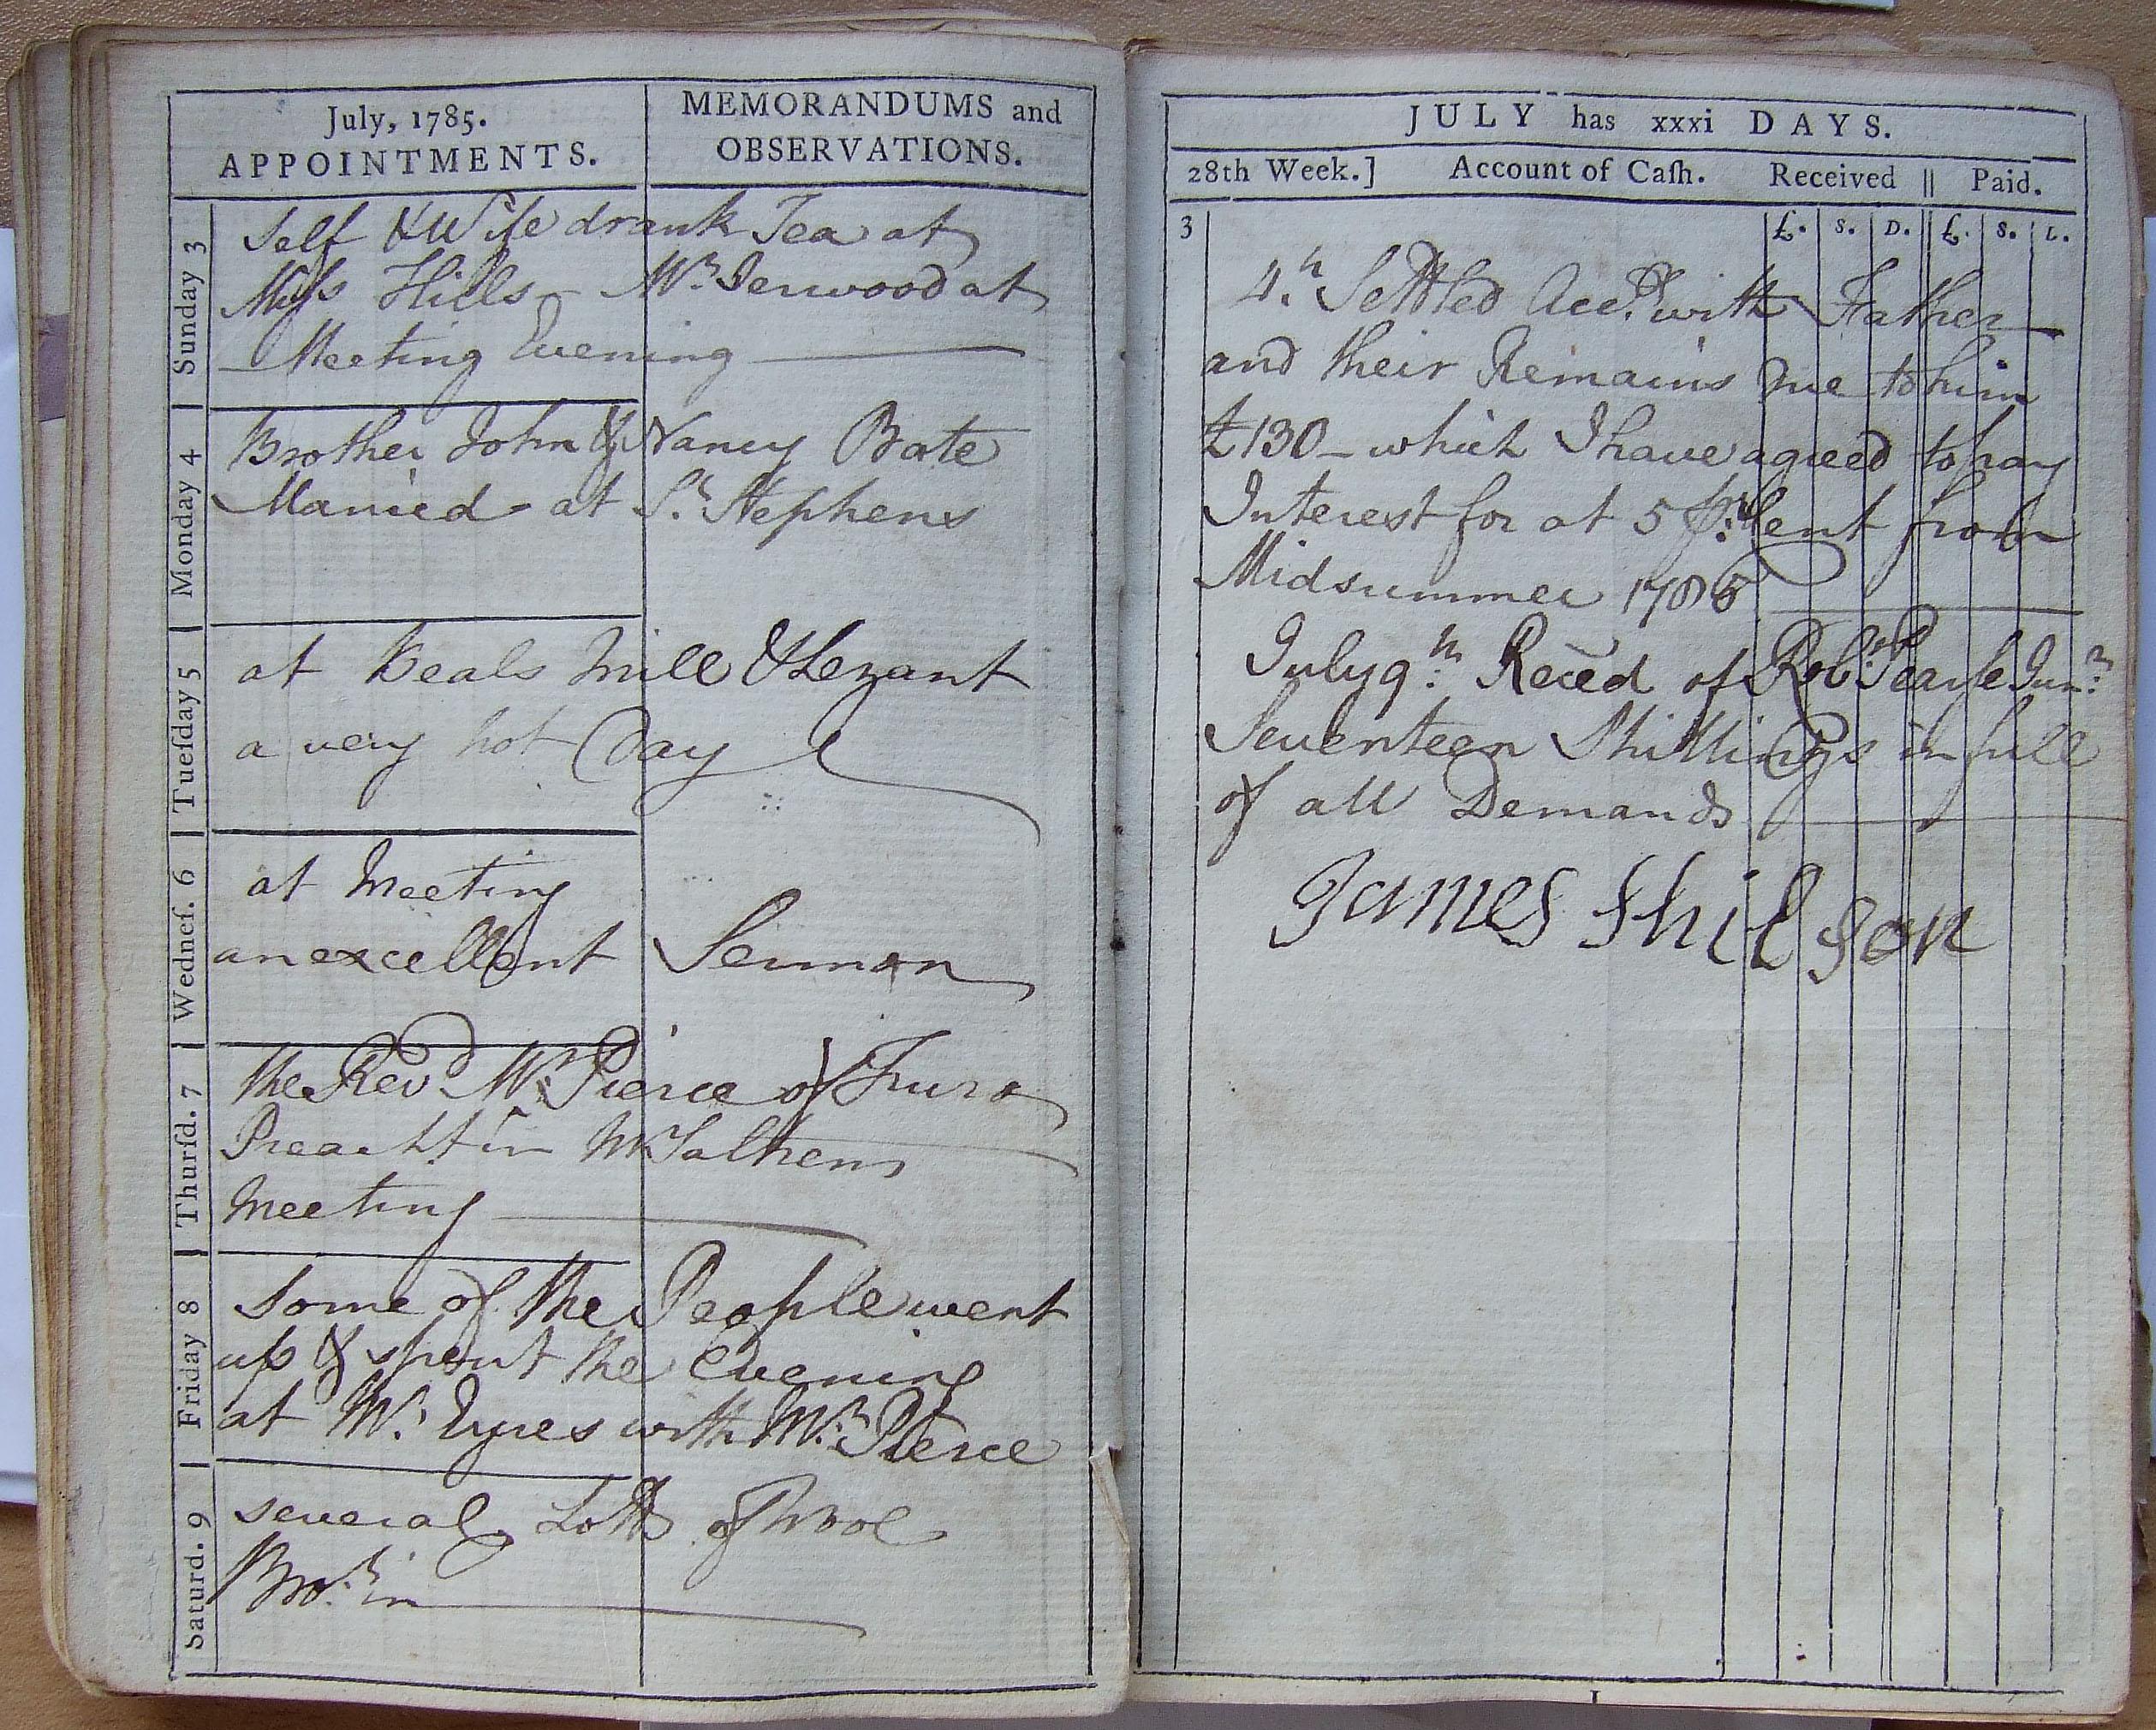 July, 1785.
APPOINTMENTS.
MEMORANDUMS and
OBSERVATIONS.
Sunday 3
Self & Wife drank Tea at
Miſs Hills – Mr. Jerwood at
Meeting Evening
Monday 4
Brother John & Nancy Bate
Married at St. Stephens
Tueſday 5
at Beals Mill & Lezant
a very hot Day
Wedneſ. 6
at Meeting
an excellent Sermon
Thurſd. 7
the Revd. Mr. Pierce of Truro
Preacht in Mr Saltren
Meeting
Friday 8
Some of the People went
up & spent the Evening
at Mr. Eyres with Mr. Pierce
Saturd. 9
several Lotts of Wool
Brot. in
JULY has xxxi DAYS.
28th Week.] Account of Caſh. Received || Paid.
3 £. S. D. £. S. D.
4.h Settled Acct. with Father
and their Remains Due to him
£130 – which I have agreed to pay
Interest for at 5 pr. Cent from
Midsummer 1785
July 9th: Reced of Robt. Pearſe Junr:
Seventeen Shillings in full
of all Demands
James Shilson